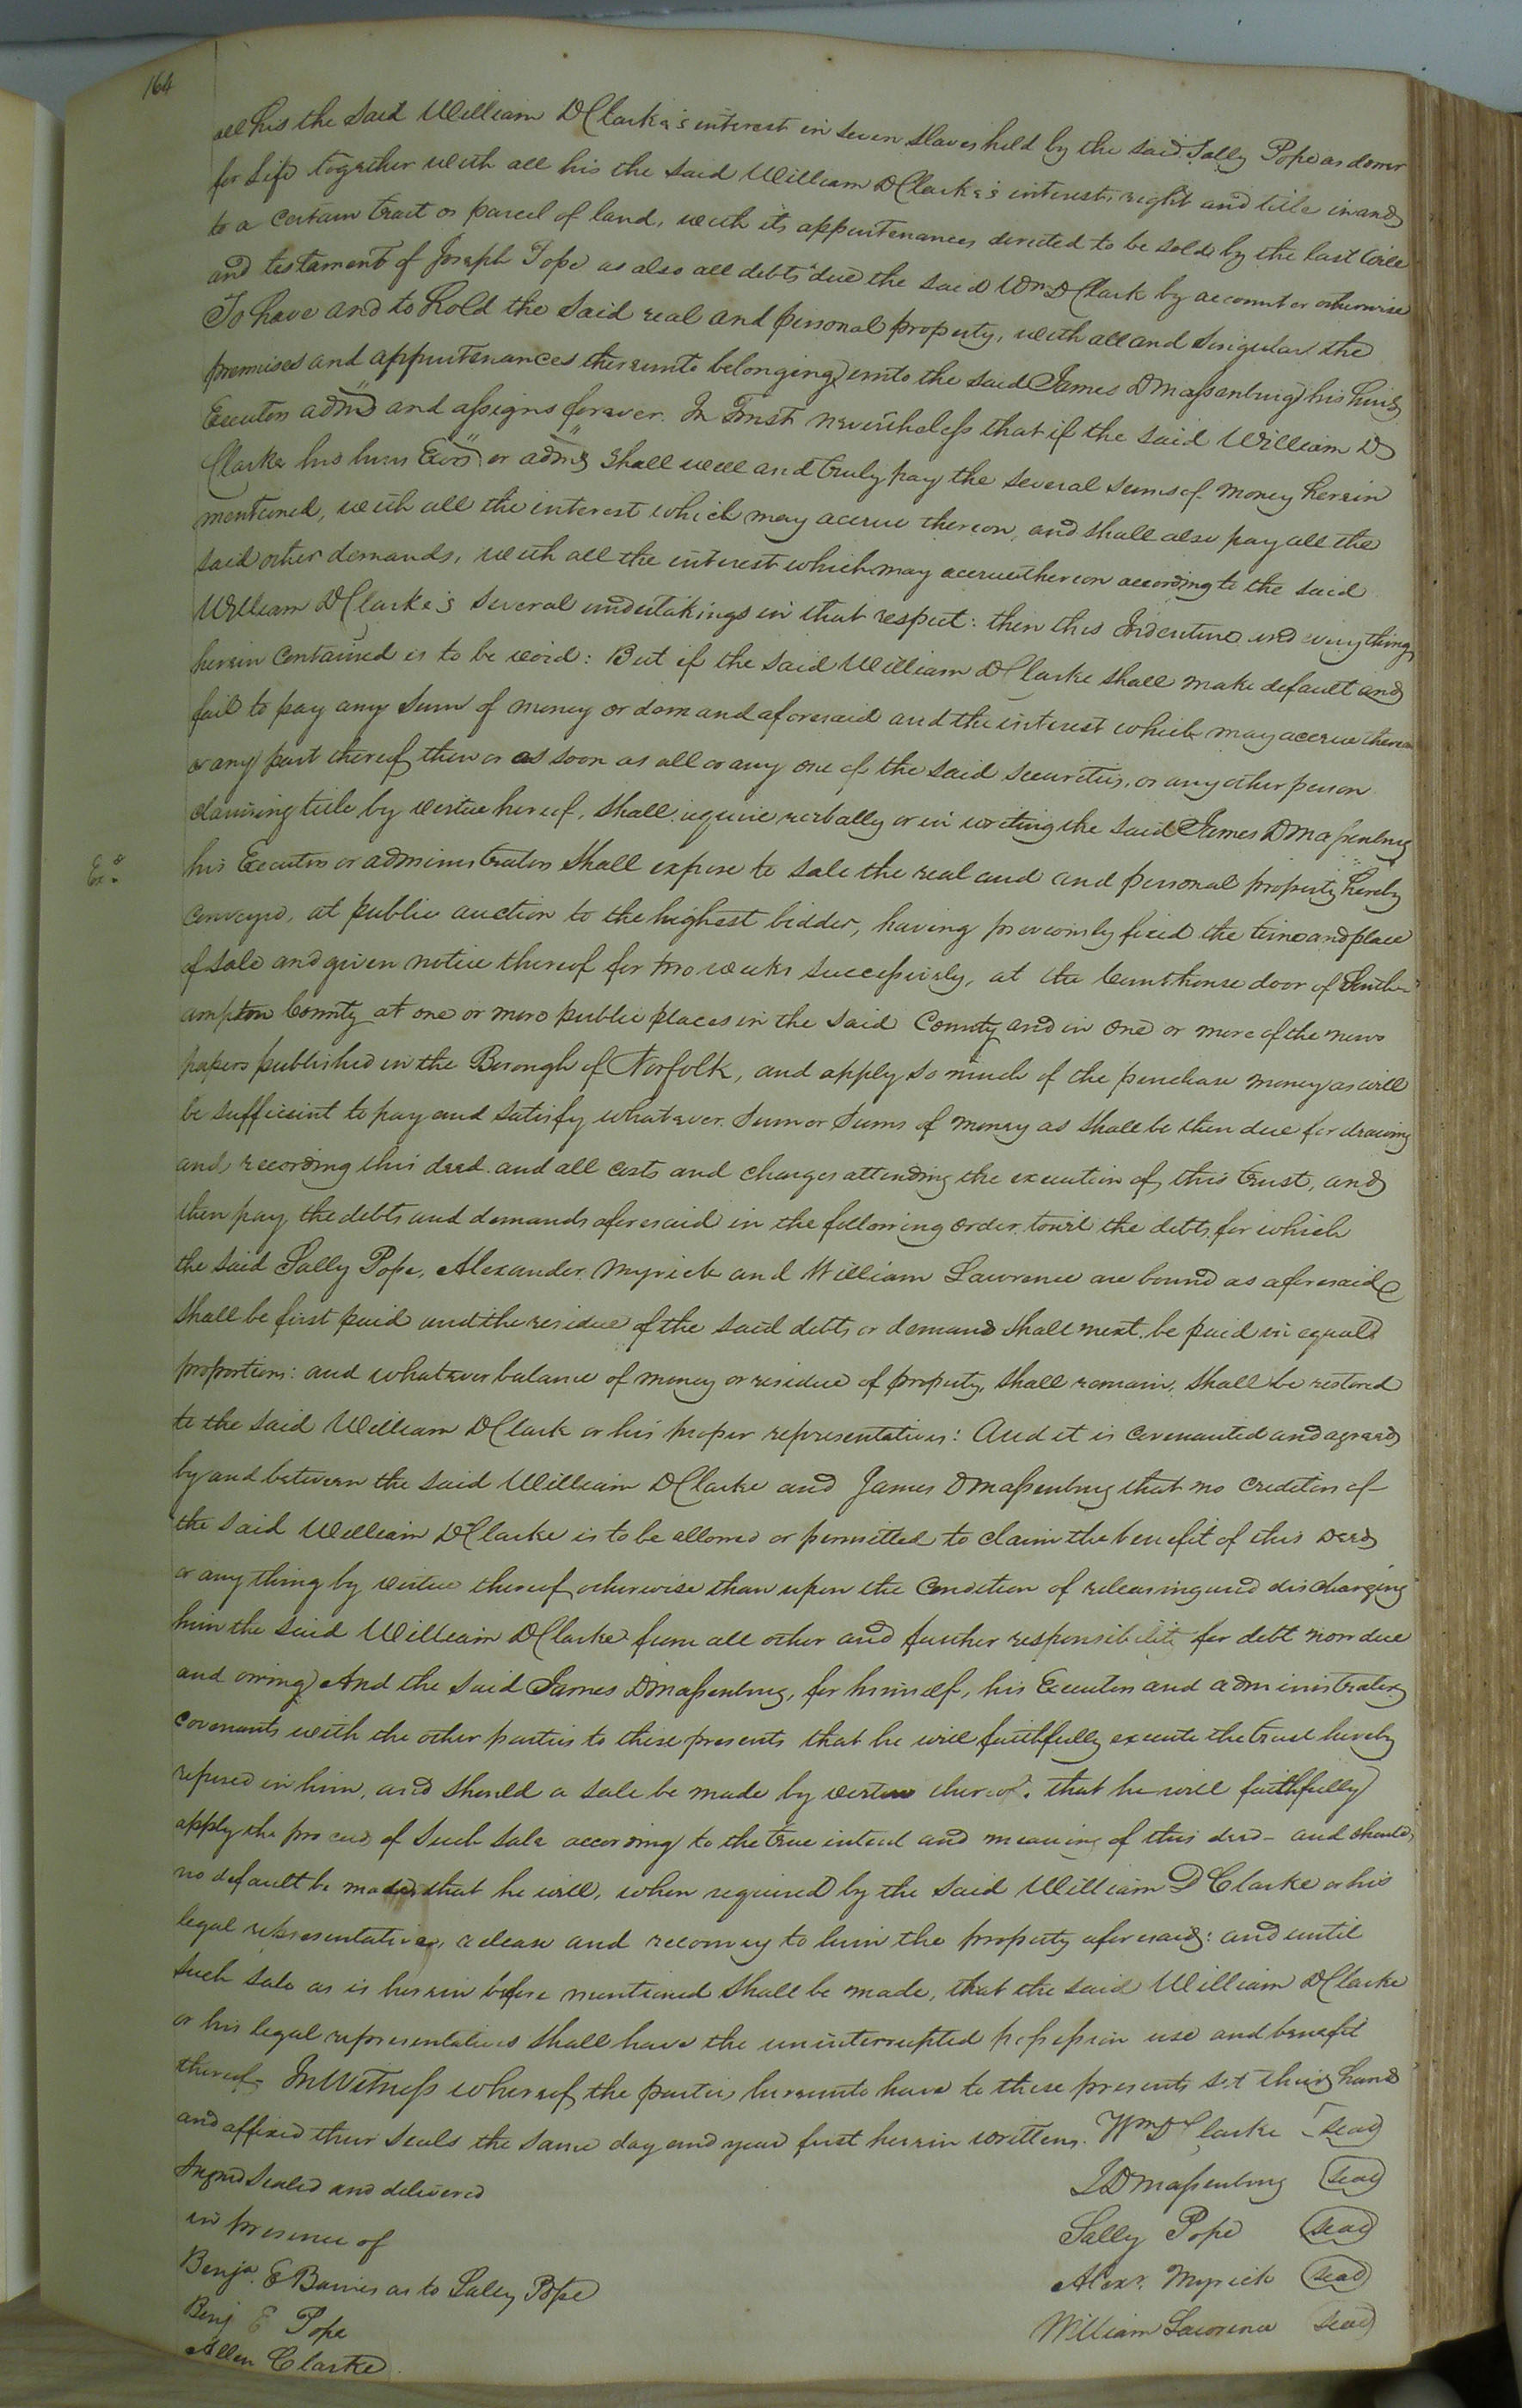 164
all his the said William D Clarke's interest in seven slaves held by the said Sally Pope as dower
for life together with all his the said William D Clarke's interest, right and title in and
to a certain tract or parcel of land, with its appurtenances directed to be sold by the last will
and testament of Joseph Pope as also all debts due the said Wm D Clark by account or otherwise
To have and to hold the said real and personal property, with all and singular the
premises and appurtenances thereunto belonging unto the said James D Massenburg his heirs
Executors adms and assigns forever. In Trust nevertheless that if the said William D
Clarke his heirs Exors or adms shall well and truly pay the several sums of money herein
mentioned, with all the interest which may accrue thereon, and shall also pay all the
said other demands, with all the interest which may accrue thereon according to the said
William D Clarke's several undertakings in that respect: then this Indenture and every thing
herein contained is to be void: But if the said William D Clarke shall make default and
fail to pay any sum of money or demand aforesaid and the interest which may accrue thereon
or any part thereof then or as soon as all or any one of the said securities, or any other person
claiming title by virtue hereof, shall require verbally or in writing the said James D Massenburg
Exr
his Executors or administrators shall expose to sale the real and and personal property hereby
conveyed, at public auction to the highest bidder, having previously fixed the time and place
of sale and given notice thereof for two weeks successively, at the Courthouse door of South-
ampton County at one or more public places in the said County and in one or more of the news
papers published in the Borough of Norfolk, and apply so much of the purchase money as will
be sufficient to pay and satisfy whatever sum or sums of money as shall be then due for drawing
and recording this deed and all costs and charges attending the execution of this trust, and
then pay the debts and demands aforesaid in the following order, towit the debts for which
the said Sally Pope, Alexander Myrick and William Lawrence are bound as aforesaid
shall be first paid and the residue of the said debts or demand shall next be paid in equal
proportions: and whatever balance of money or residue of property, shall remain, shall be restored
to the said William D Clark or his proper representatives: And it is covenanted and agreed
by and between the said William D Clarke and James D Massenburg that no creditors of
the said William D Clarke is to be allowed or permitted to claim the benefit of this deed
or any thing by virtue thereof otherwise than upon the condition of releasing and discharging
him the said William D Clarke from all other and further responsibility for debt now due
and owing And the said James D Massenburg, for himself, his Executors and administrators
covenants with the other parties to these presents that he will faithfully execute the trust hereby
reposed in him, and should a sale be made by virtue thereof, that he will faithfully
apply the proceeds of such sale according to the true intent and meaning of this deed - and should
no default be made that he will, when required by the said William D Clarke or his
legal representatives, release and reconvey to him the property aforesaid: and until
such sale as is herein before mentioned shall be made, that the said William D Clarke
or his legal representatives shall have the uninterrupted possession use and benefit
thereof. In Witness whereof the parties hereunto have to these presents set their hands
and affixed their seals the same day and year first herein written. Wm D Clarke seal
Signed Sealed and delivered J D Massenburg seal
in presence of Sally Pope seal
Benja. E Barnes as to Sally Pope Alexr. Myrick seal
Benj E Pope William Lawrence seal
Allen Clarke